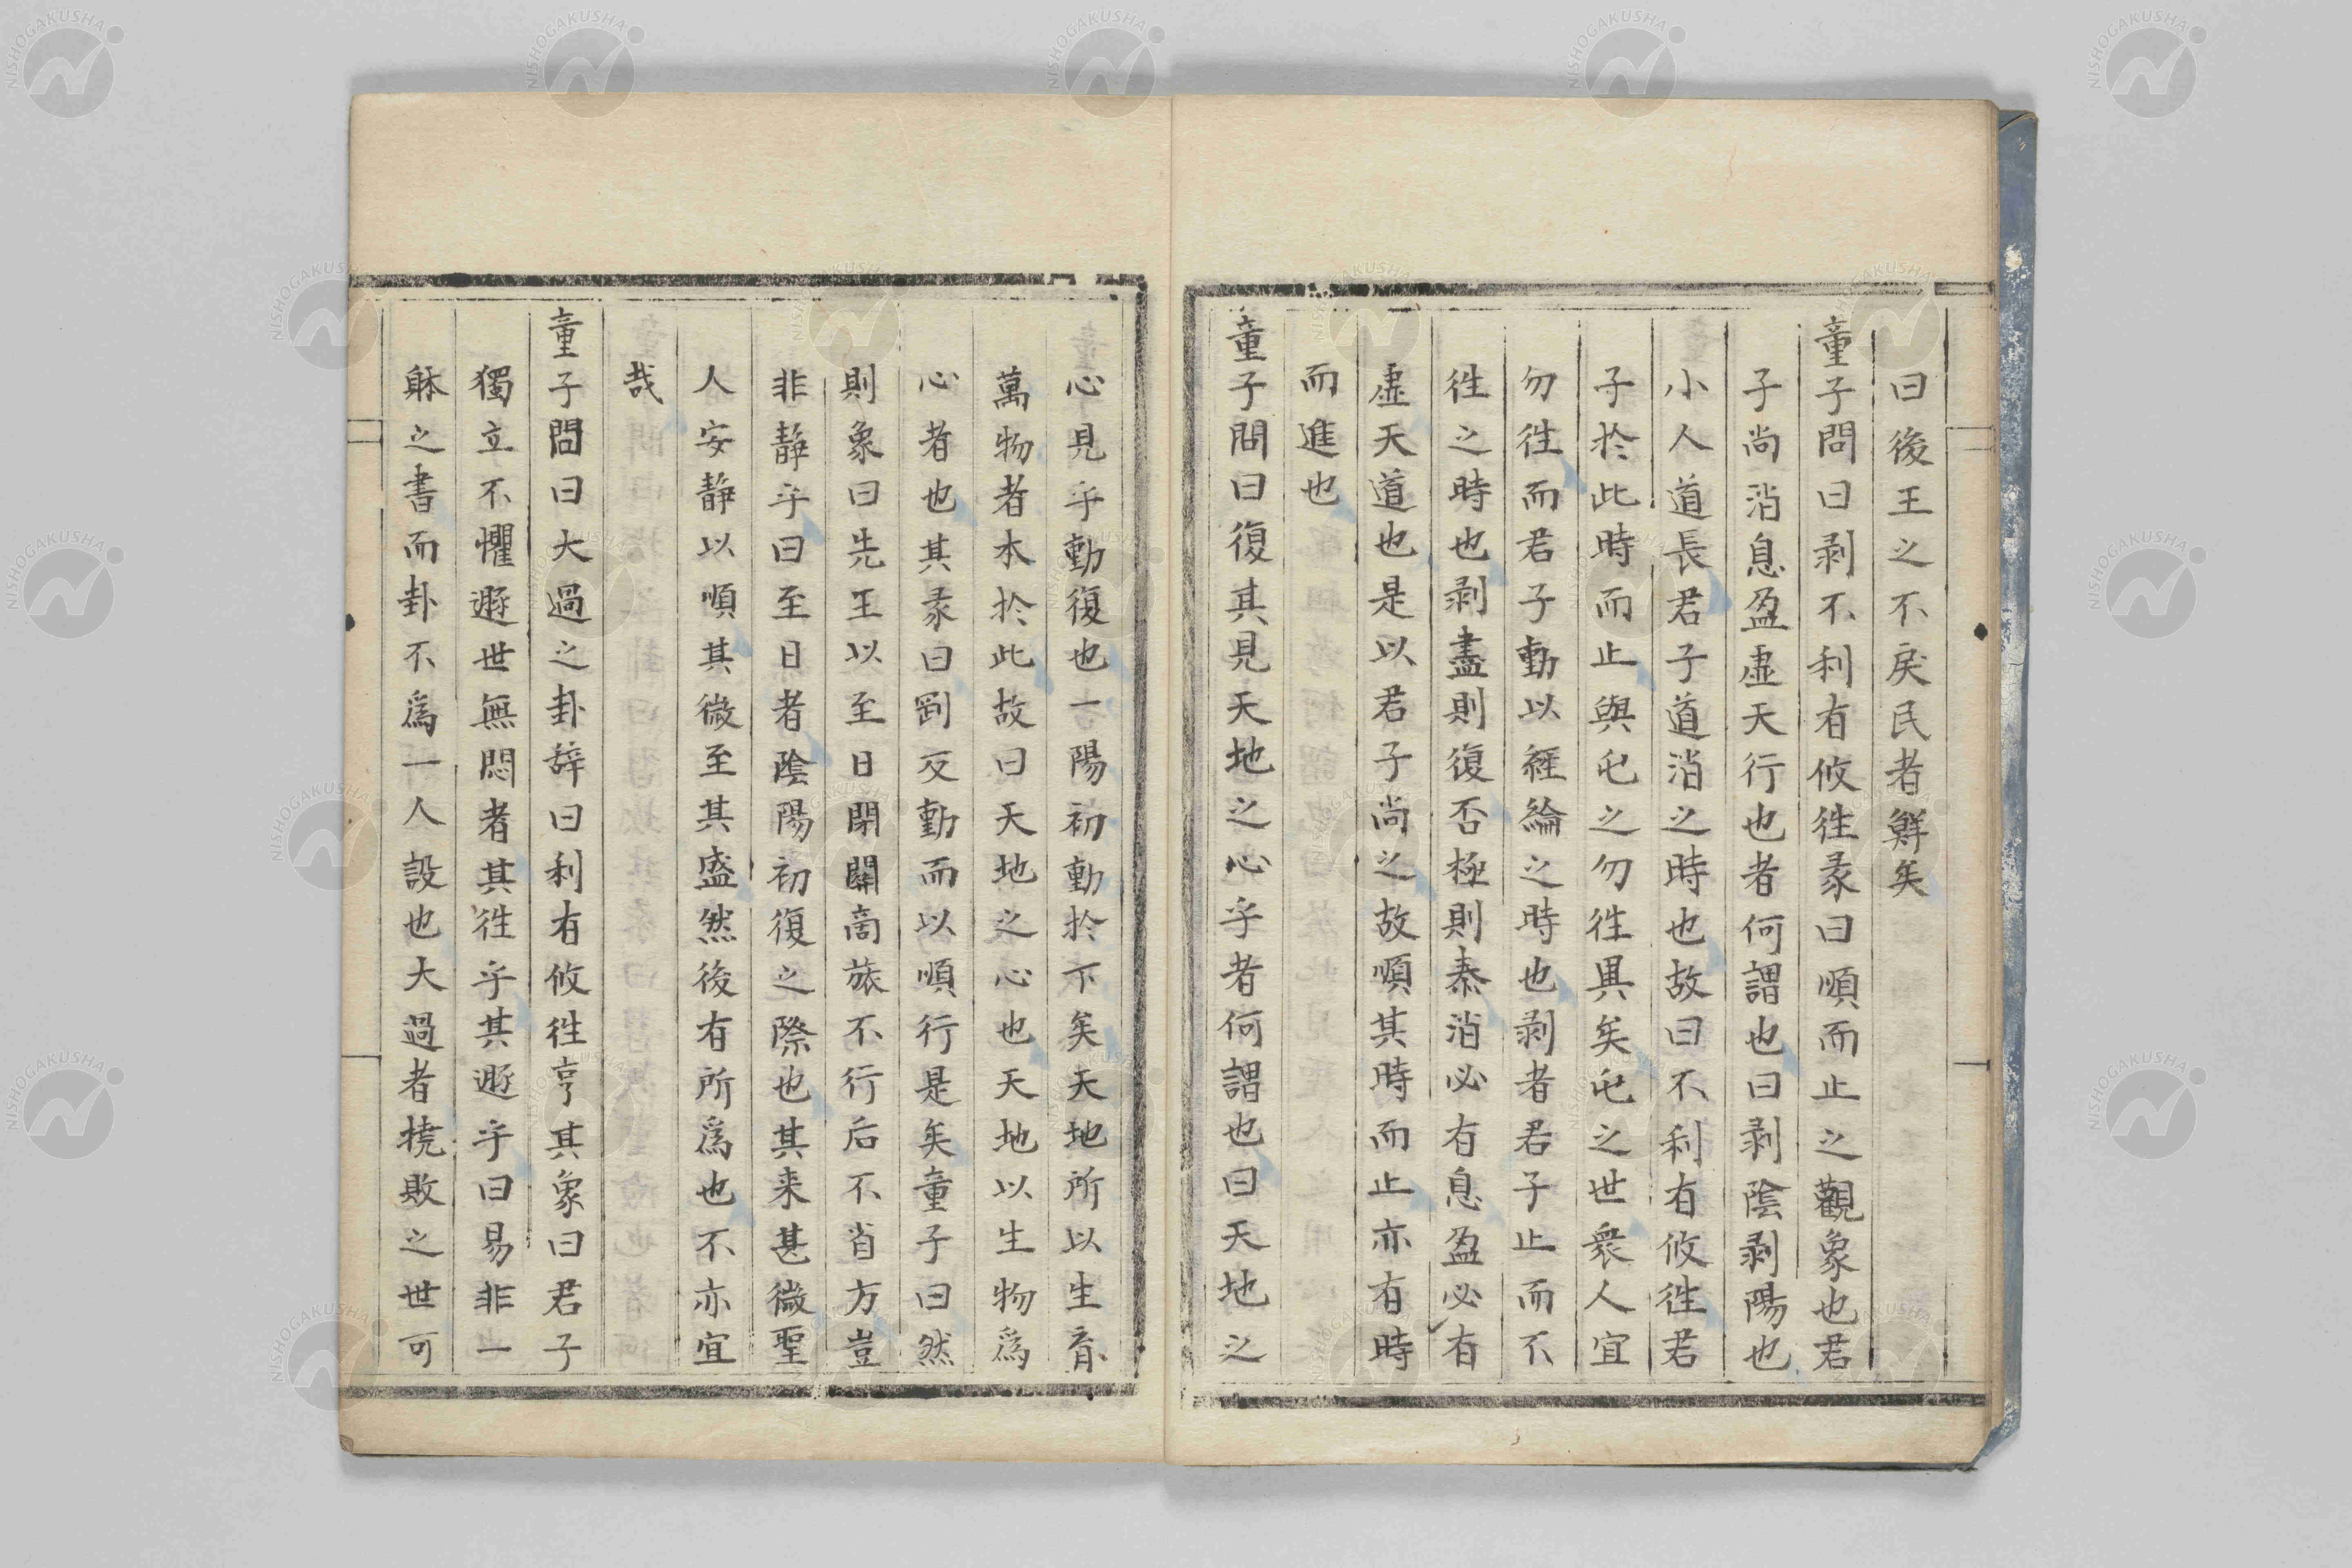 曰後王之不戾民者鮮矣
童子問曰剥不利有攸徃彖曰順而止之觀象也君
子尚消息盈虚天行也者何謂也曰剥陰剥陽也
小人道長君子道消之時也故曰不利有攸徃君
子於此時而止與屯之勿徃異矣屯之世衆人宜
勿徃而君子動以經綸之時也剥者君子止而不
徃之時也剥盡則復否極則泰消必有息盈必有
虚天道也是以君子尚之故順其時而止亦有時
而進也
童子問曰復其見天地之心乎者何謂也曰天地之
心見乎動復也一陽初動於下矣天地所以生育
萬物者本於此故曰天地之心也天地以生物爲
心者也其彖曰剛反動而以順行是矣童子曰然
則象曰先王以至日閉關商旅不行后不省方豈
非静乎曰至日者陰陽初復之際也其来甚微聖
人安静以順其微至其盛然後有所爲也不亦宜
哉
童子問曰大過之卦辞曰利有攸徃亨其象曰君子
獨立不懼遯世無悶者其徃乎其遯乎曰易非一
躰之書而卦不爲一人設也大過者撓敗之世可
NISHOGAKUSHA